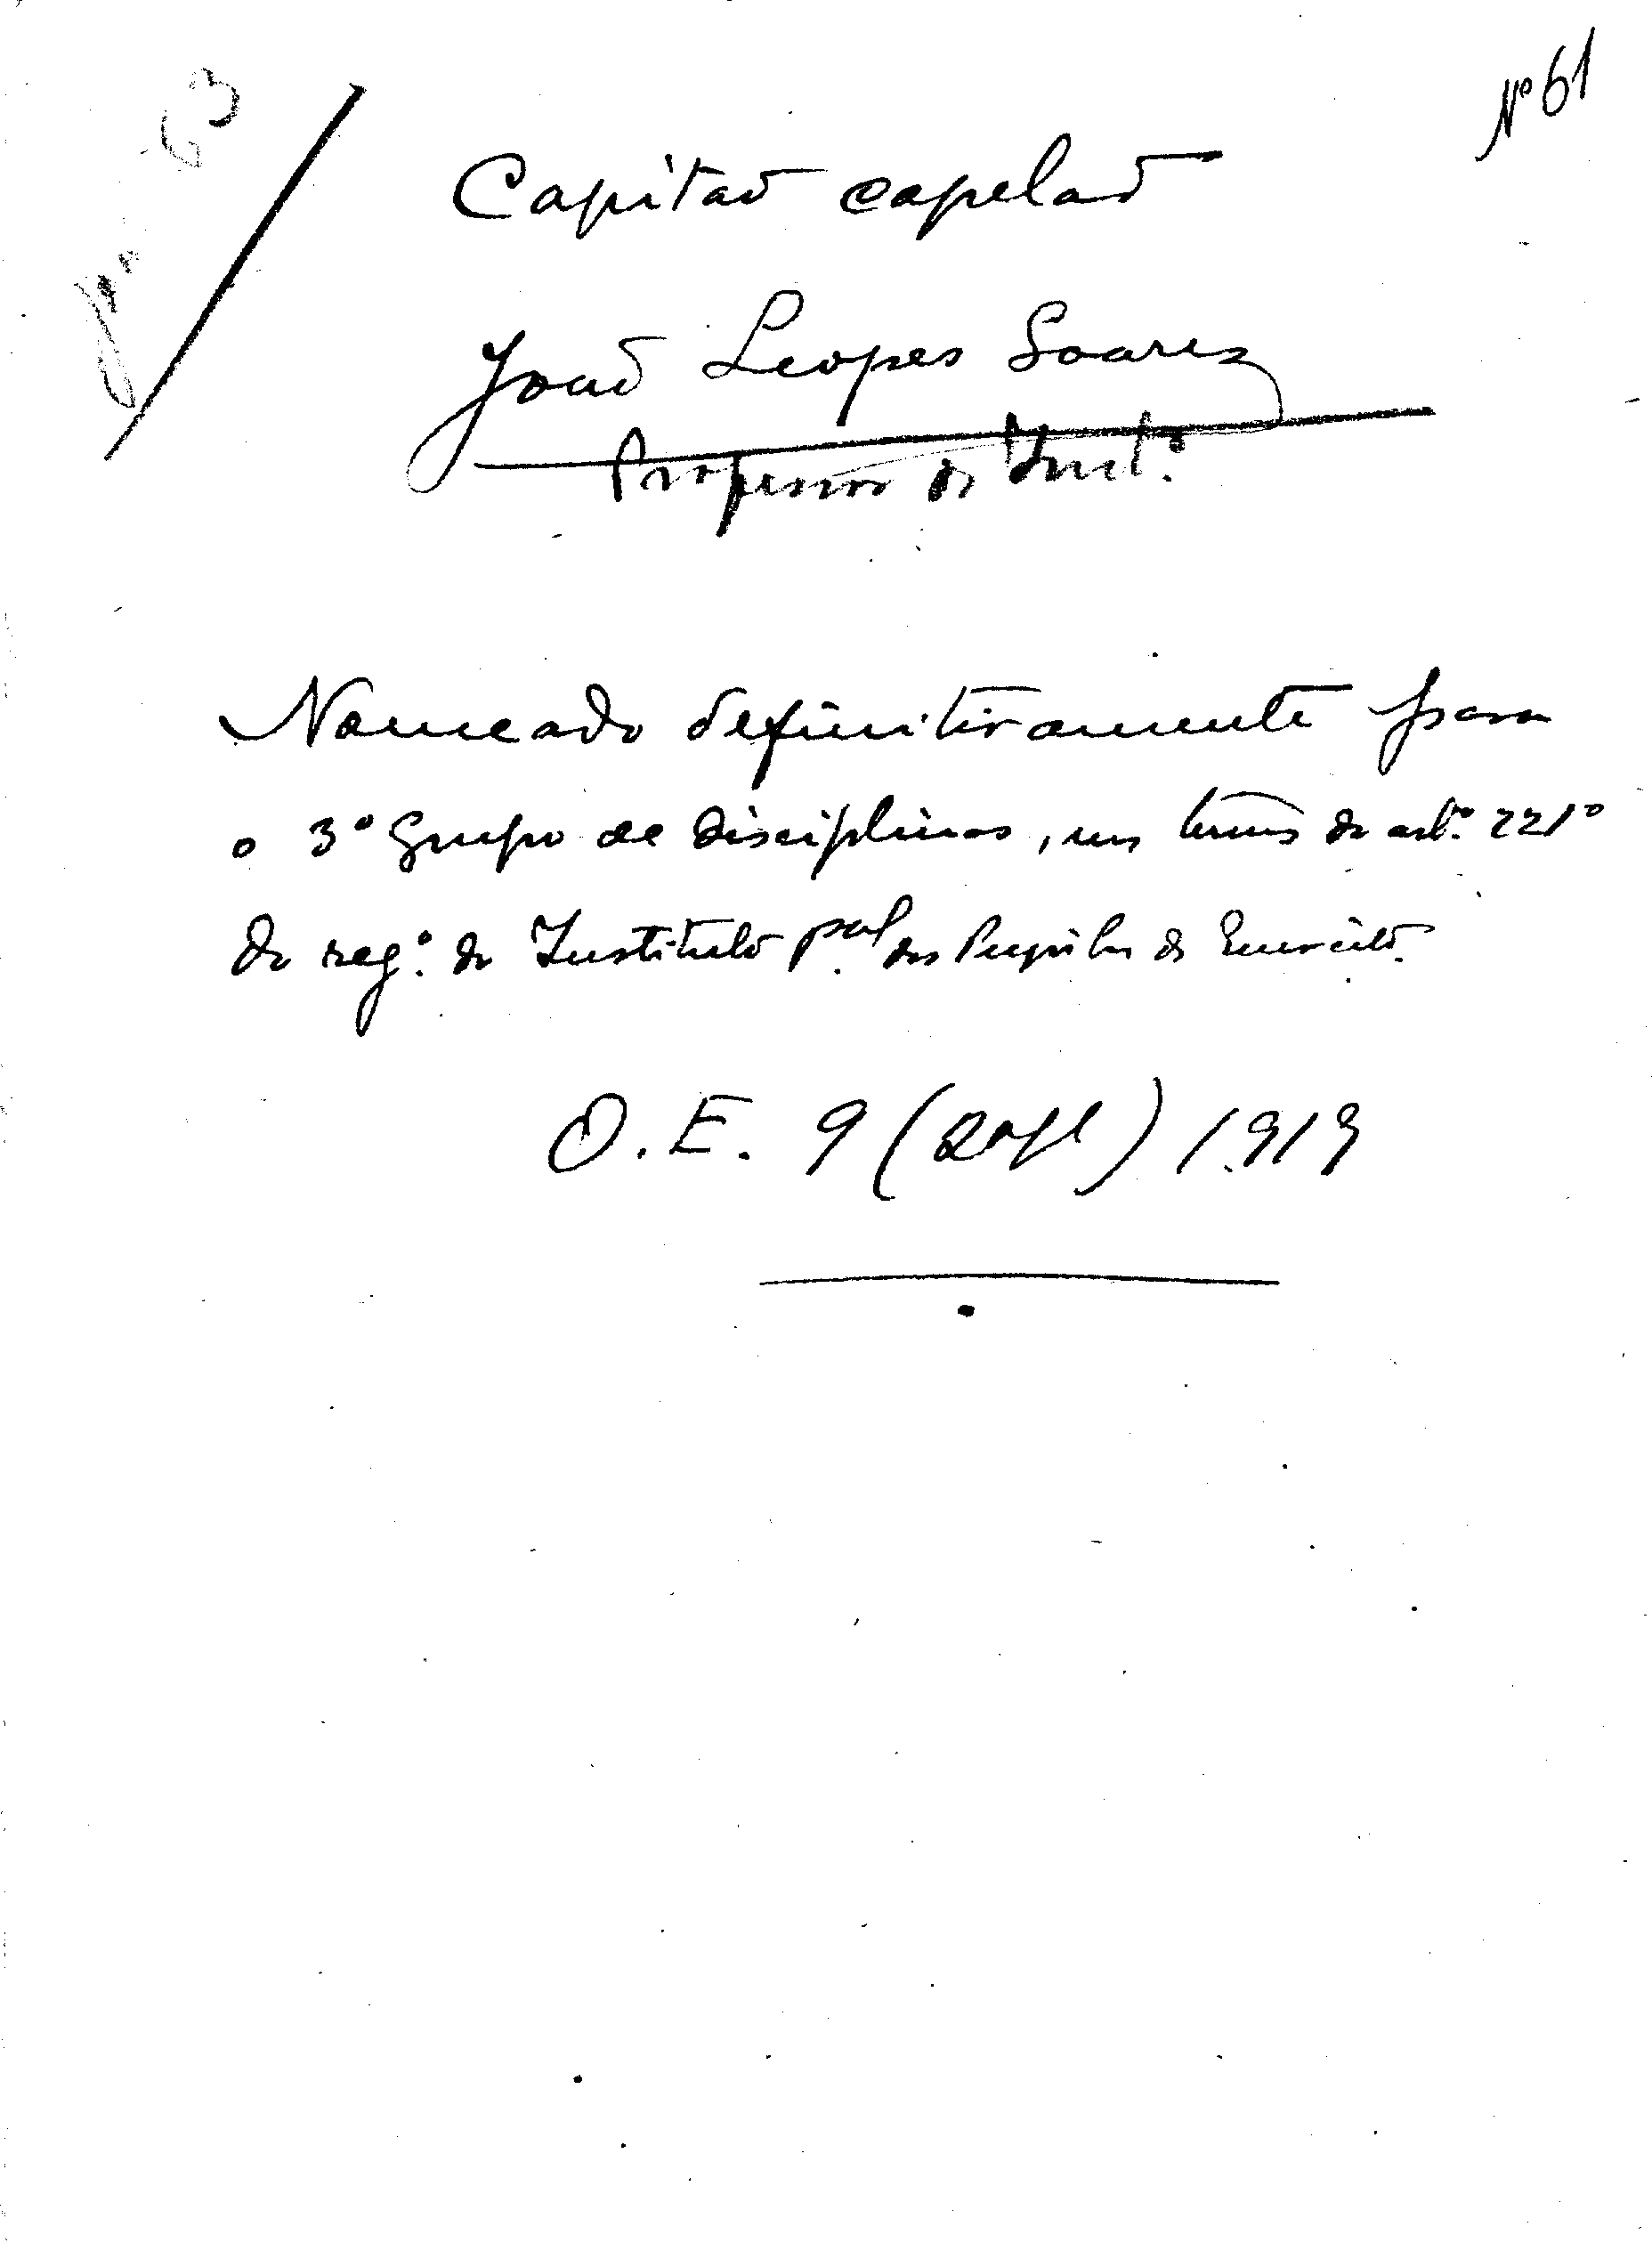 Nº 61
Capitão capelão
João Lopes Soares
Professor do Inst.º
Nomeado definitivamente para
o 3º Grupo de disciplinas, nos termos do artº. 221º
do reg.º do Instituto p.al dos Pupilos do Exercito.
O. E. 9 (2ªs) 1919